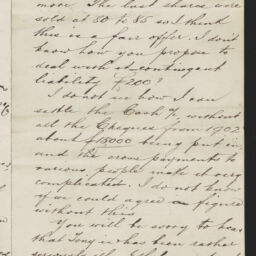 more. The last shares were
sold at 80 to 85 so I think
this is a fair offer. I don't
know how you propose to
deal with it contingent
liability £200?
I do not see how I can
settle the Cash % without
all the Cheques from 1902
about £15000 being put in,
and the cross payments to
various people make it very
complicated. I do not know
if we could agree a figure
without this
You will be sorry to hear
that Tony has been rather